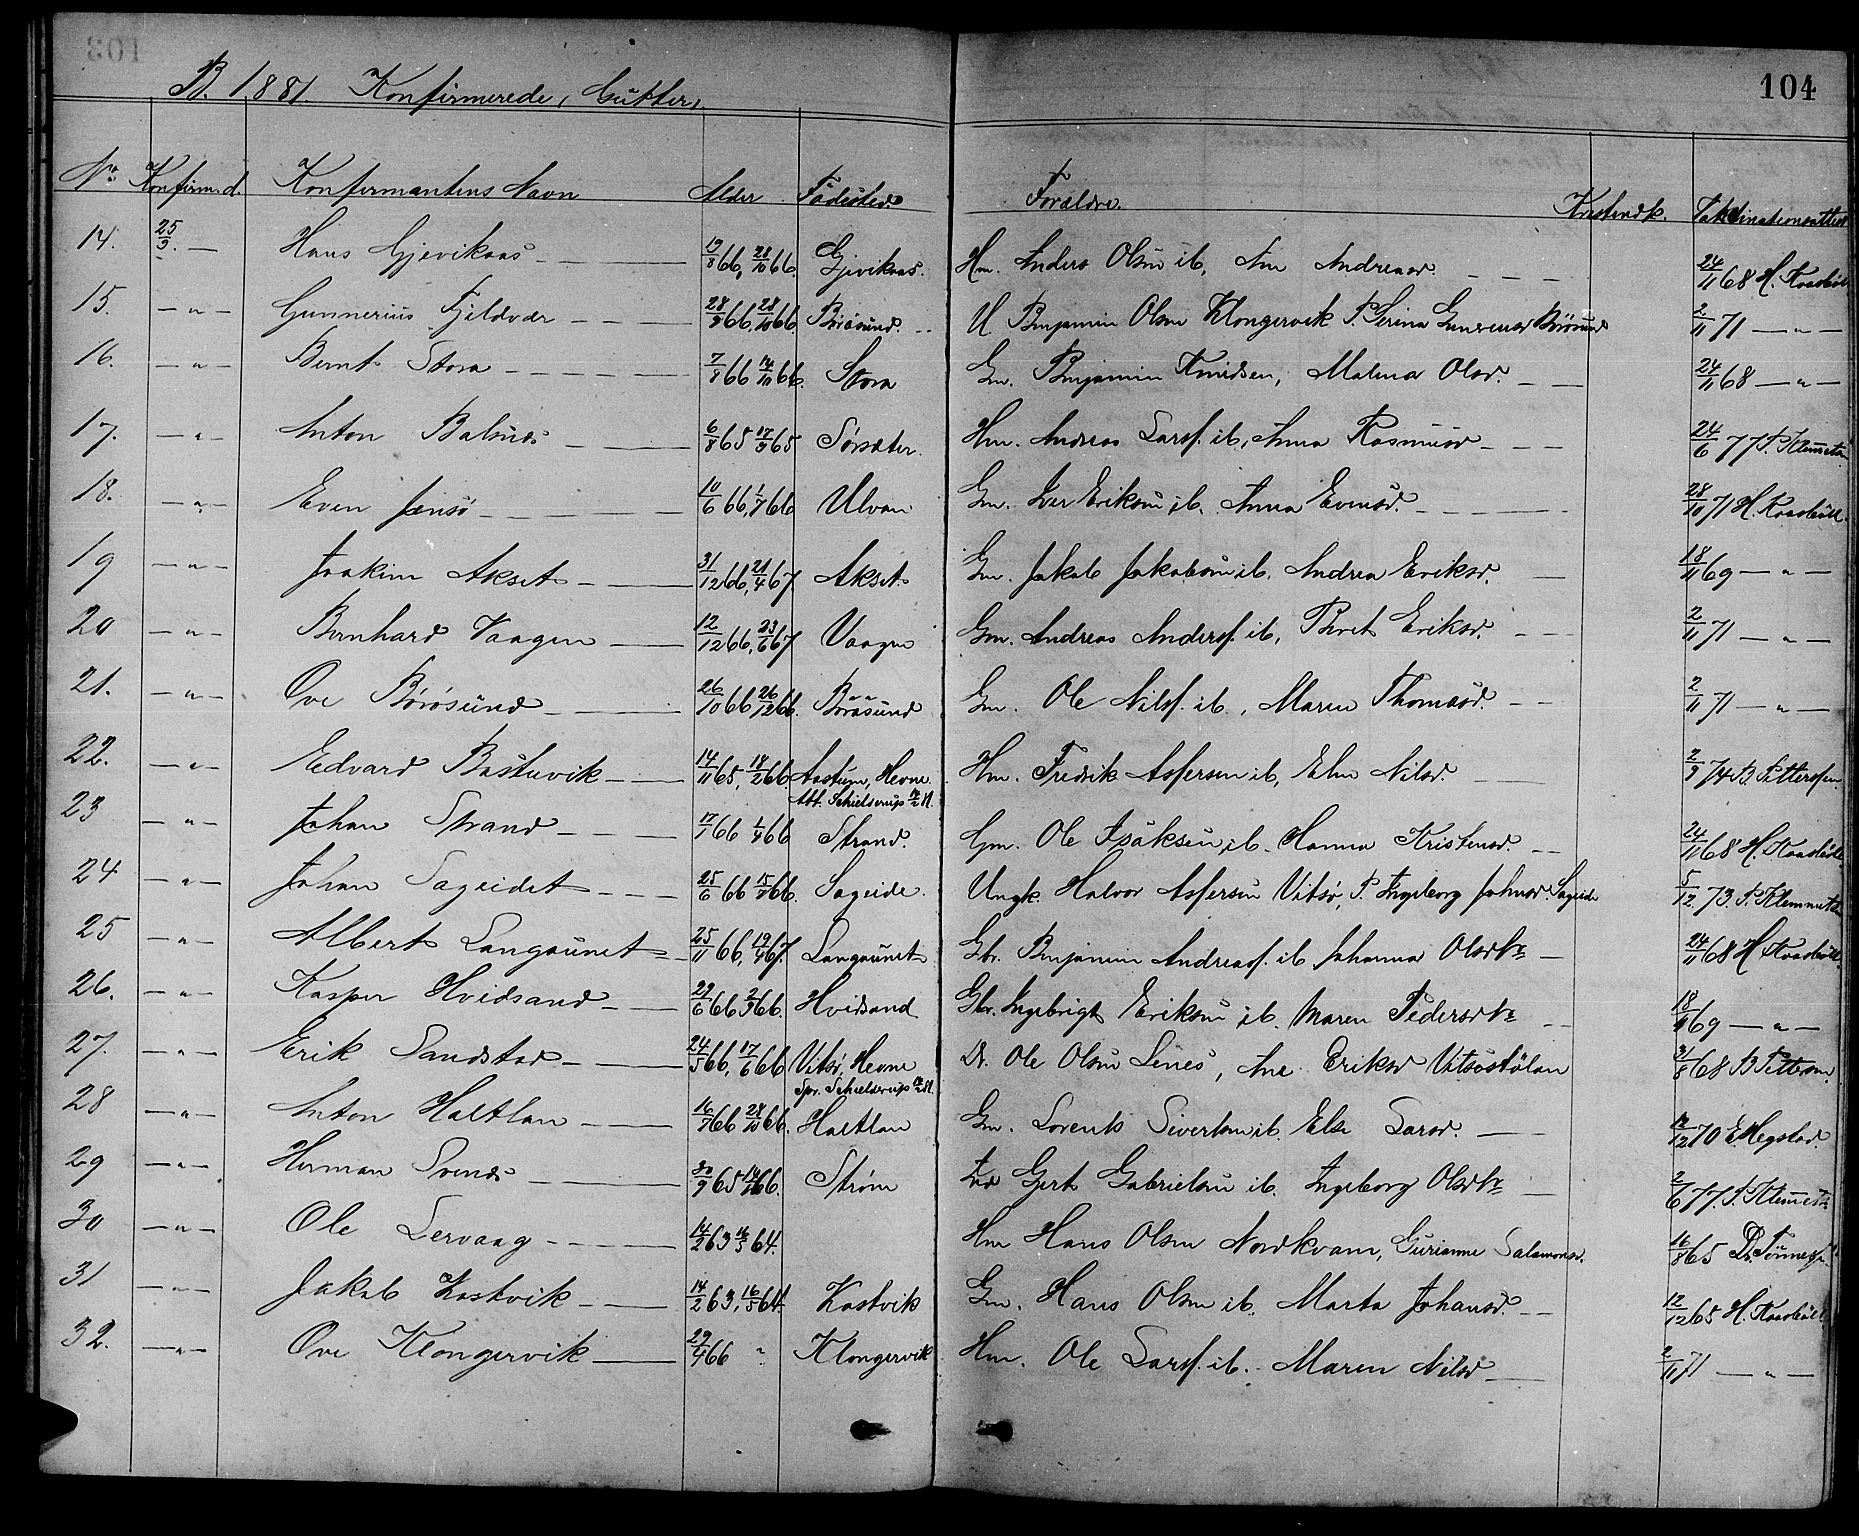 103
104
B. 1881. Konfirmerede, Gutter,
No Konfirm.d. Konfirmantens Navn Alder Fødested. Forældre. Kristendk. Vakcinationsattest
14. 25/9. — Hans Gjevikaas — 19/8 66, 28/10 66. Gjevikaas. Hm. Anders Olsen ib, Ane Andreasd. 24/11 68 H. Kaasbøll
15. — " — Gunnerius Fjeldvær — 28/9 66, 28/10 66 Børøsund. U Benjamin Olsen Klongervik P. Serina Børøsund 2/11 71 — " —
16. — " — Bernt Stora — 7/8 66 14/10 66. Stora Gm. Benjamin Knudsen, Malena Olsd. 24/11 68 — " —
17. — " — Anton Balsnes — 6/8 65 17/9 65 Sørsæter Hm. Andreas Larsf. ib, Anna Rasmusd 24/6 77 P. Klemmets
18. — " — Even Jensø — 10/6 66, 1/7 66 Ulvan Gm. Iver Eriksen ib. Anna Evensd. 28/10 71 H. Kaasbøll.
19 — " — Joakim Akset — 31/12 66, 21/4 67 Akset Gm. Jakob Jakobsen ib. Andrea Eriksd. 18/11 69 — " —
20 — " — Bernhard Vaagen — 12/12 66, 23/6 67 Vaagen Gm. Andreas Andersf. ib, Beret Eriksd. 2/11 71 — " —
21. — " — Ove Børøsund — 26/10 66 26/12 66. Børøsund Gm. Ole Nilsf. ib., Maren Thomasd. 2/11 71 — " —
22. — " — Edvard Bastuvik — 14/11 65, 18/2 66. Aastum, Hevne. Hm. Fredrik Asfersen ib, Elen Nilsd. 2/9 74 B. Pettersen.
Att. Schielderup
23 — " — Johan Strand — 17/1 66 1/4 66 Strand. Gm. Ole Isaksen ib. Hanna Kristensd. 24/11 68 H. Kaasbøll
24 — " — Johan Sageidet — 25/6 66 15/7 66. Sageide. Ungk. Halvor Asfersen Vitsø, P. Ingeborg Johnsd. Sageide 5/12 73. P. Klemmets
25 — " — Albert Langaunet — 25/11 66, 19/4 67. Langaunet Gbr. Benjamin Andreasf. ib Johanna Olsdtr — 24/11 68 H Kaasbøll.
26. — " — Kasper Hvidsand — 29/6 66 2/9 66. Hvidsand Gbr. Ingebrigt Eriksen ib. Maren Pedersdtr 18/11 69 — " —
27. — " — Erik Sandstad — 24/5 66, 17/6 66 Vitsø, Hevne Ole Olsen Lines, Ane Eriksd Vitsøstølan 31/8 68 B Pettersen.
Schielderup
28 — " — Anton Haltlan — 16/9 66 28/10 66. Haltlan Gm. Lorents Sivertsen ib. Else Larsd. 12/12 70 E Hegstad.
29 — " — Herman Svenes — 30/9 65 66. Strøm Ind Gert Gabrielsen ib. Ingeborg Olsdtr — 2/6 77. P. Klemmets
30 — " — Ole Lervaag — 14/2 63 16/5 64. Hm Hans Olsen Nordkvam, Gurianne Salamonsd. 16/8 65 D. Tønnesf.
31 — " — Jakob Kastvik — 14/2 63, 16/5 64. Kastvik Gm. Hans Olsen ib. Marta Johansd. 12/12 65 H. Kaasbøll
32. — " — Ove Klongervik — 29/4 66 " Klongervik Hm. Ole Larsf. ib. Maren Nilsd — 2/11 71 — " —